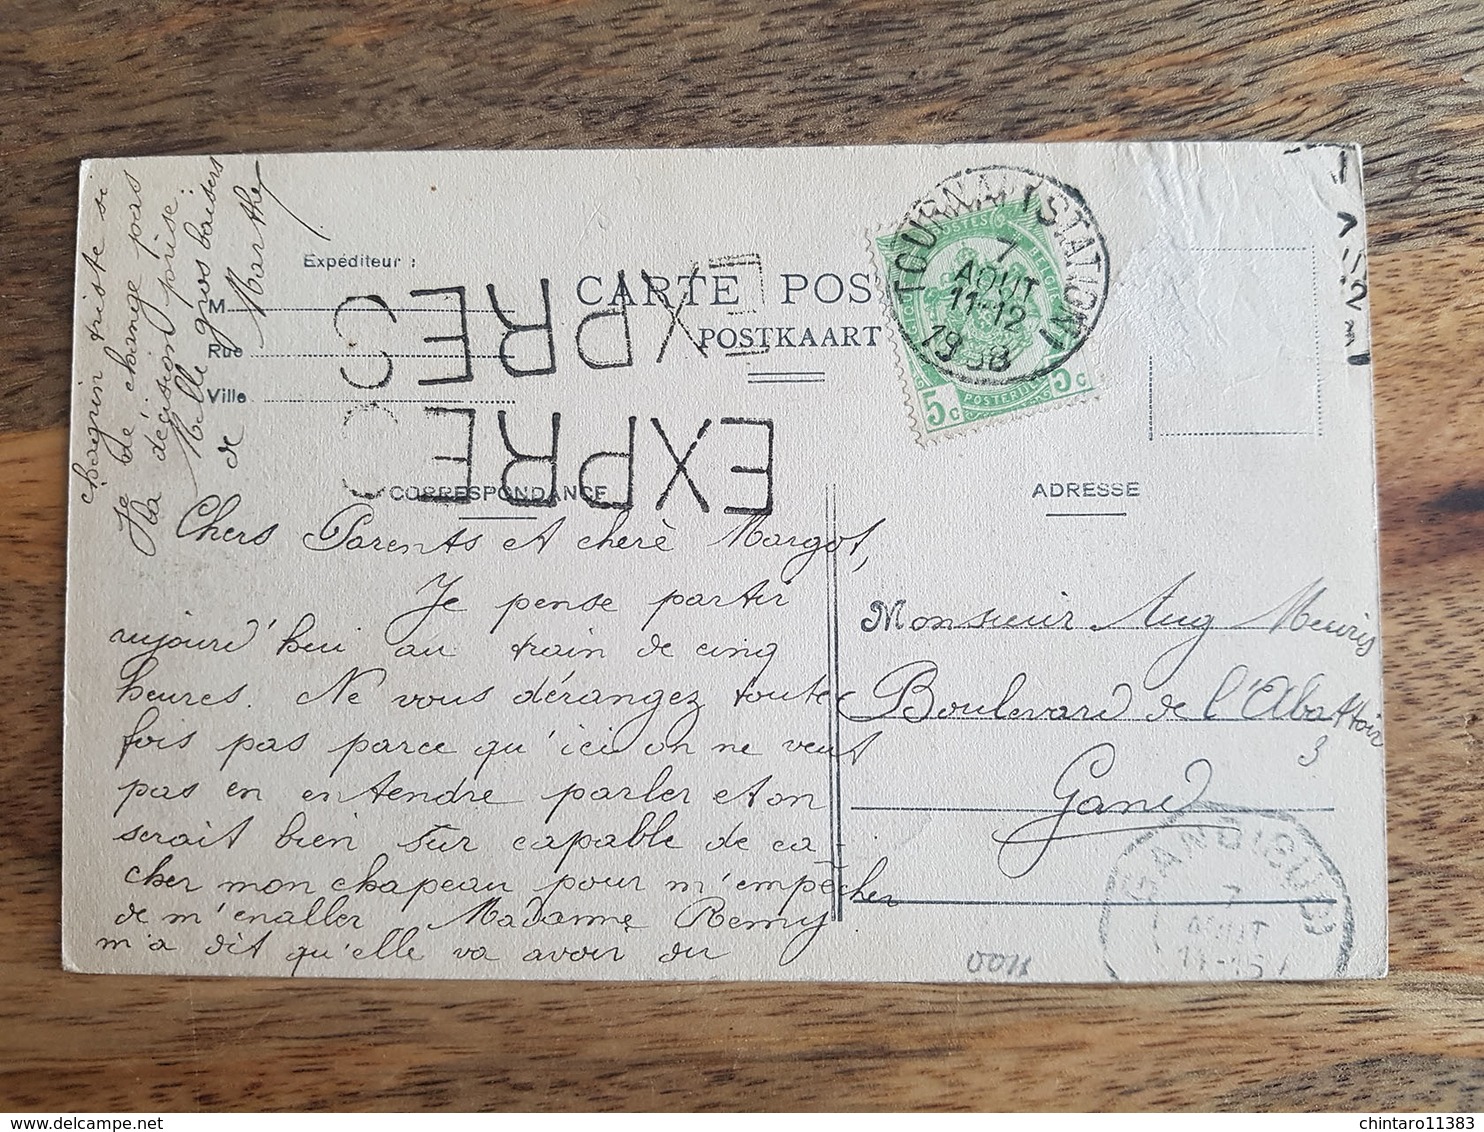 Expéditeur :
M
Rue
Ville
CARTE POS
POSTKAART
EXPRES
EXPRES
TOURNAI (STATION)
7
AOUT
11-12
1908
POSTES
BELGIQUE
POSTERIJEN
5 c
5 c
CORRESPONDANCE
ADRESSE
Chers Parents et chère Margot,
Je pense partir
aujourd'hui au train de cinq
heures. Ne vous dérangez toute
fois pas parce qu'ici on ne veut
pas en entendre parler et on
serait bien sûr capable de ca
cher mon chapeau pour m'empêcher
de m'en aller Madame Remy
m'a dit qu'elle va avoir du
chagrin triste si
je de change pas
la décision prise.
Mille gros baisers
de Marthe
Monsieur Aug Meuris
Boulevard de l'Abattoir
3
Gand
GAND
7
AOUT
11-15
chintaro11383